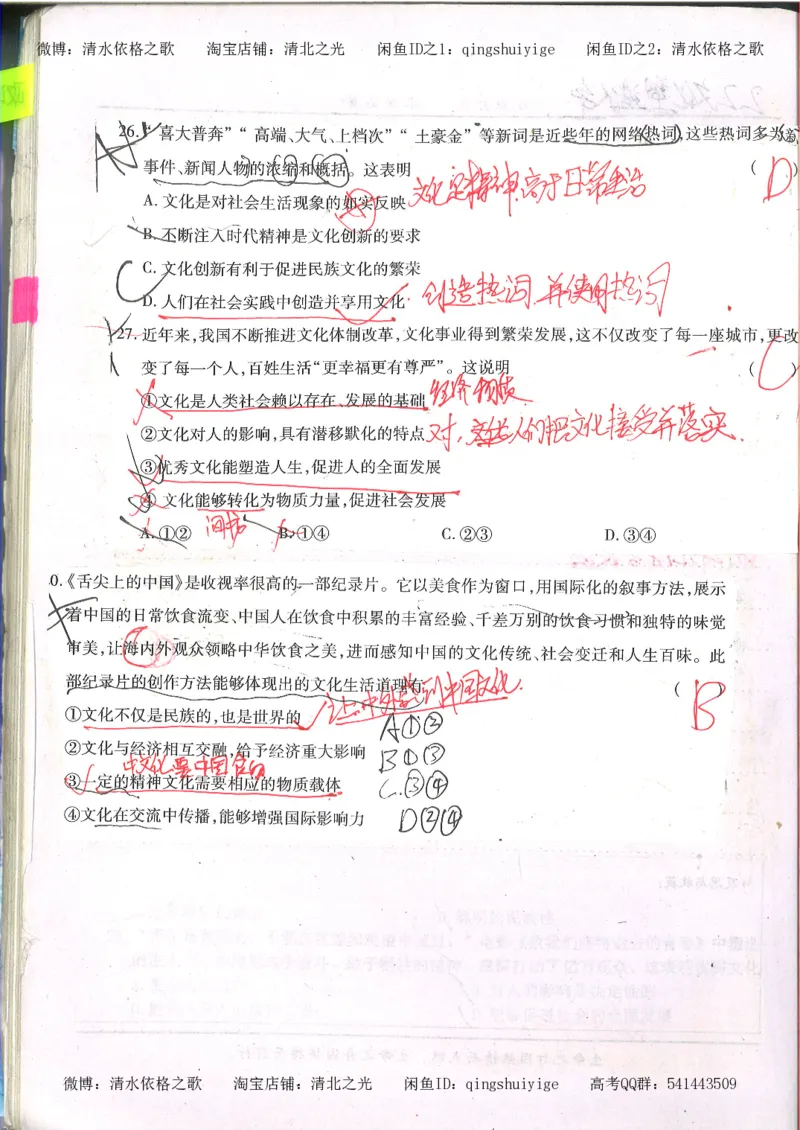 微博：清水依格之歌 淘宝店铺：清北之光 闲鱼ID之1：qingshuiyige 闲鱼ID之2：清水依格之歌
26.“喜大普奔”“高端、大气、上档次”“土豪金”等新词是近些年的网络热词,这些热词多为
事件、新闻人物的浓缩和概括。这表明 ( D )
A. 文化是对社会生活现象的如实反映 文化是精神,高于日常生活
B. 不断注入时代精神是文化创新的要求
C. 文化创新有利于促进民族文化的繁荣
D. 人们在社会实践中创造并享用文化 创造热词,并使用热词
27. 近年来,我国不断推进文化体制改革,文化事业得到繁荣发展,这不仅改变了每一座城市,更改
变了每一个人,百姓生活“更幸福更有尊严”。这说明 ( C )
①文化是人类社会赖以存在、发展的基础 经济 物质
②文化对人的影响,具有潜移默化的特点 对, 人们把文化接受并落实
③优秀文化能塑造人生,促进人的全面发展
④文化能够转化为物质力量,促进社会发展
间接
A. ①② B. ①④ C. ②③ D. ③④
0.《舌尖上的中国》是收视率很高的一部纪录片。它以美食作为窗口,用国际化的叙事方法,展示
着中国的日常饮食流变、中国人在饮食中积累的丰富经验、千差万别的饮食习惯和独特的味觉
审美,让海内外观众领略中华饮食之美,进而感知中国的文化传统、社会变迁和人生百味。此
部纪录片的创作方法能够体现出的文化生活道理有 ( B )
①文化不仅是民族的,也是世界的 让中外 到中国文化.
A①②
②文化与经济相互交融,给予经济重大影响 B①③
中文化要中国食的
③一定的精神文化需要相应的物质载体 C.③④
④文化在交流中传播,能够增强国际影响力 D②④
微博：清水依格之歌 淘宝店铺：清北之光 闲鱼ID：qingshuiyige 高考QQ群：541443509